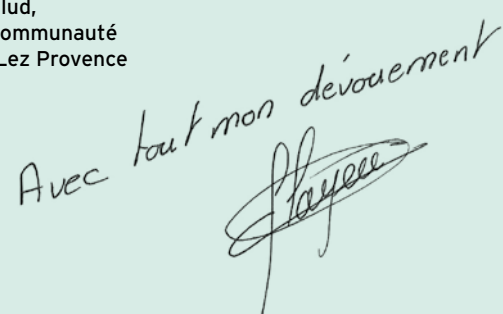 lud,
ommunauté
Lez Provence
Avec tout mon dévouement